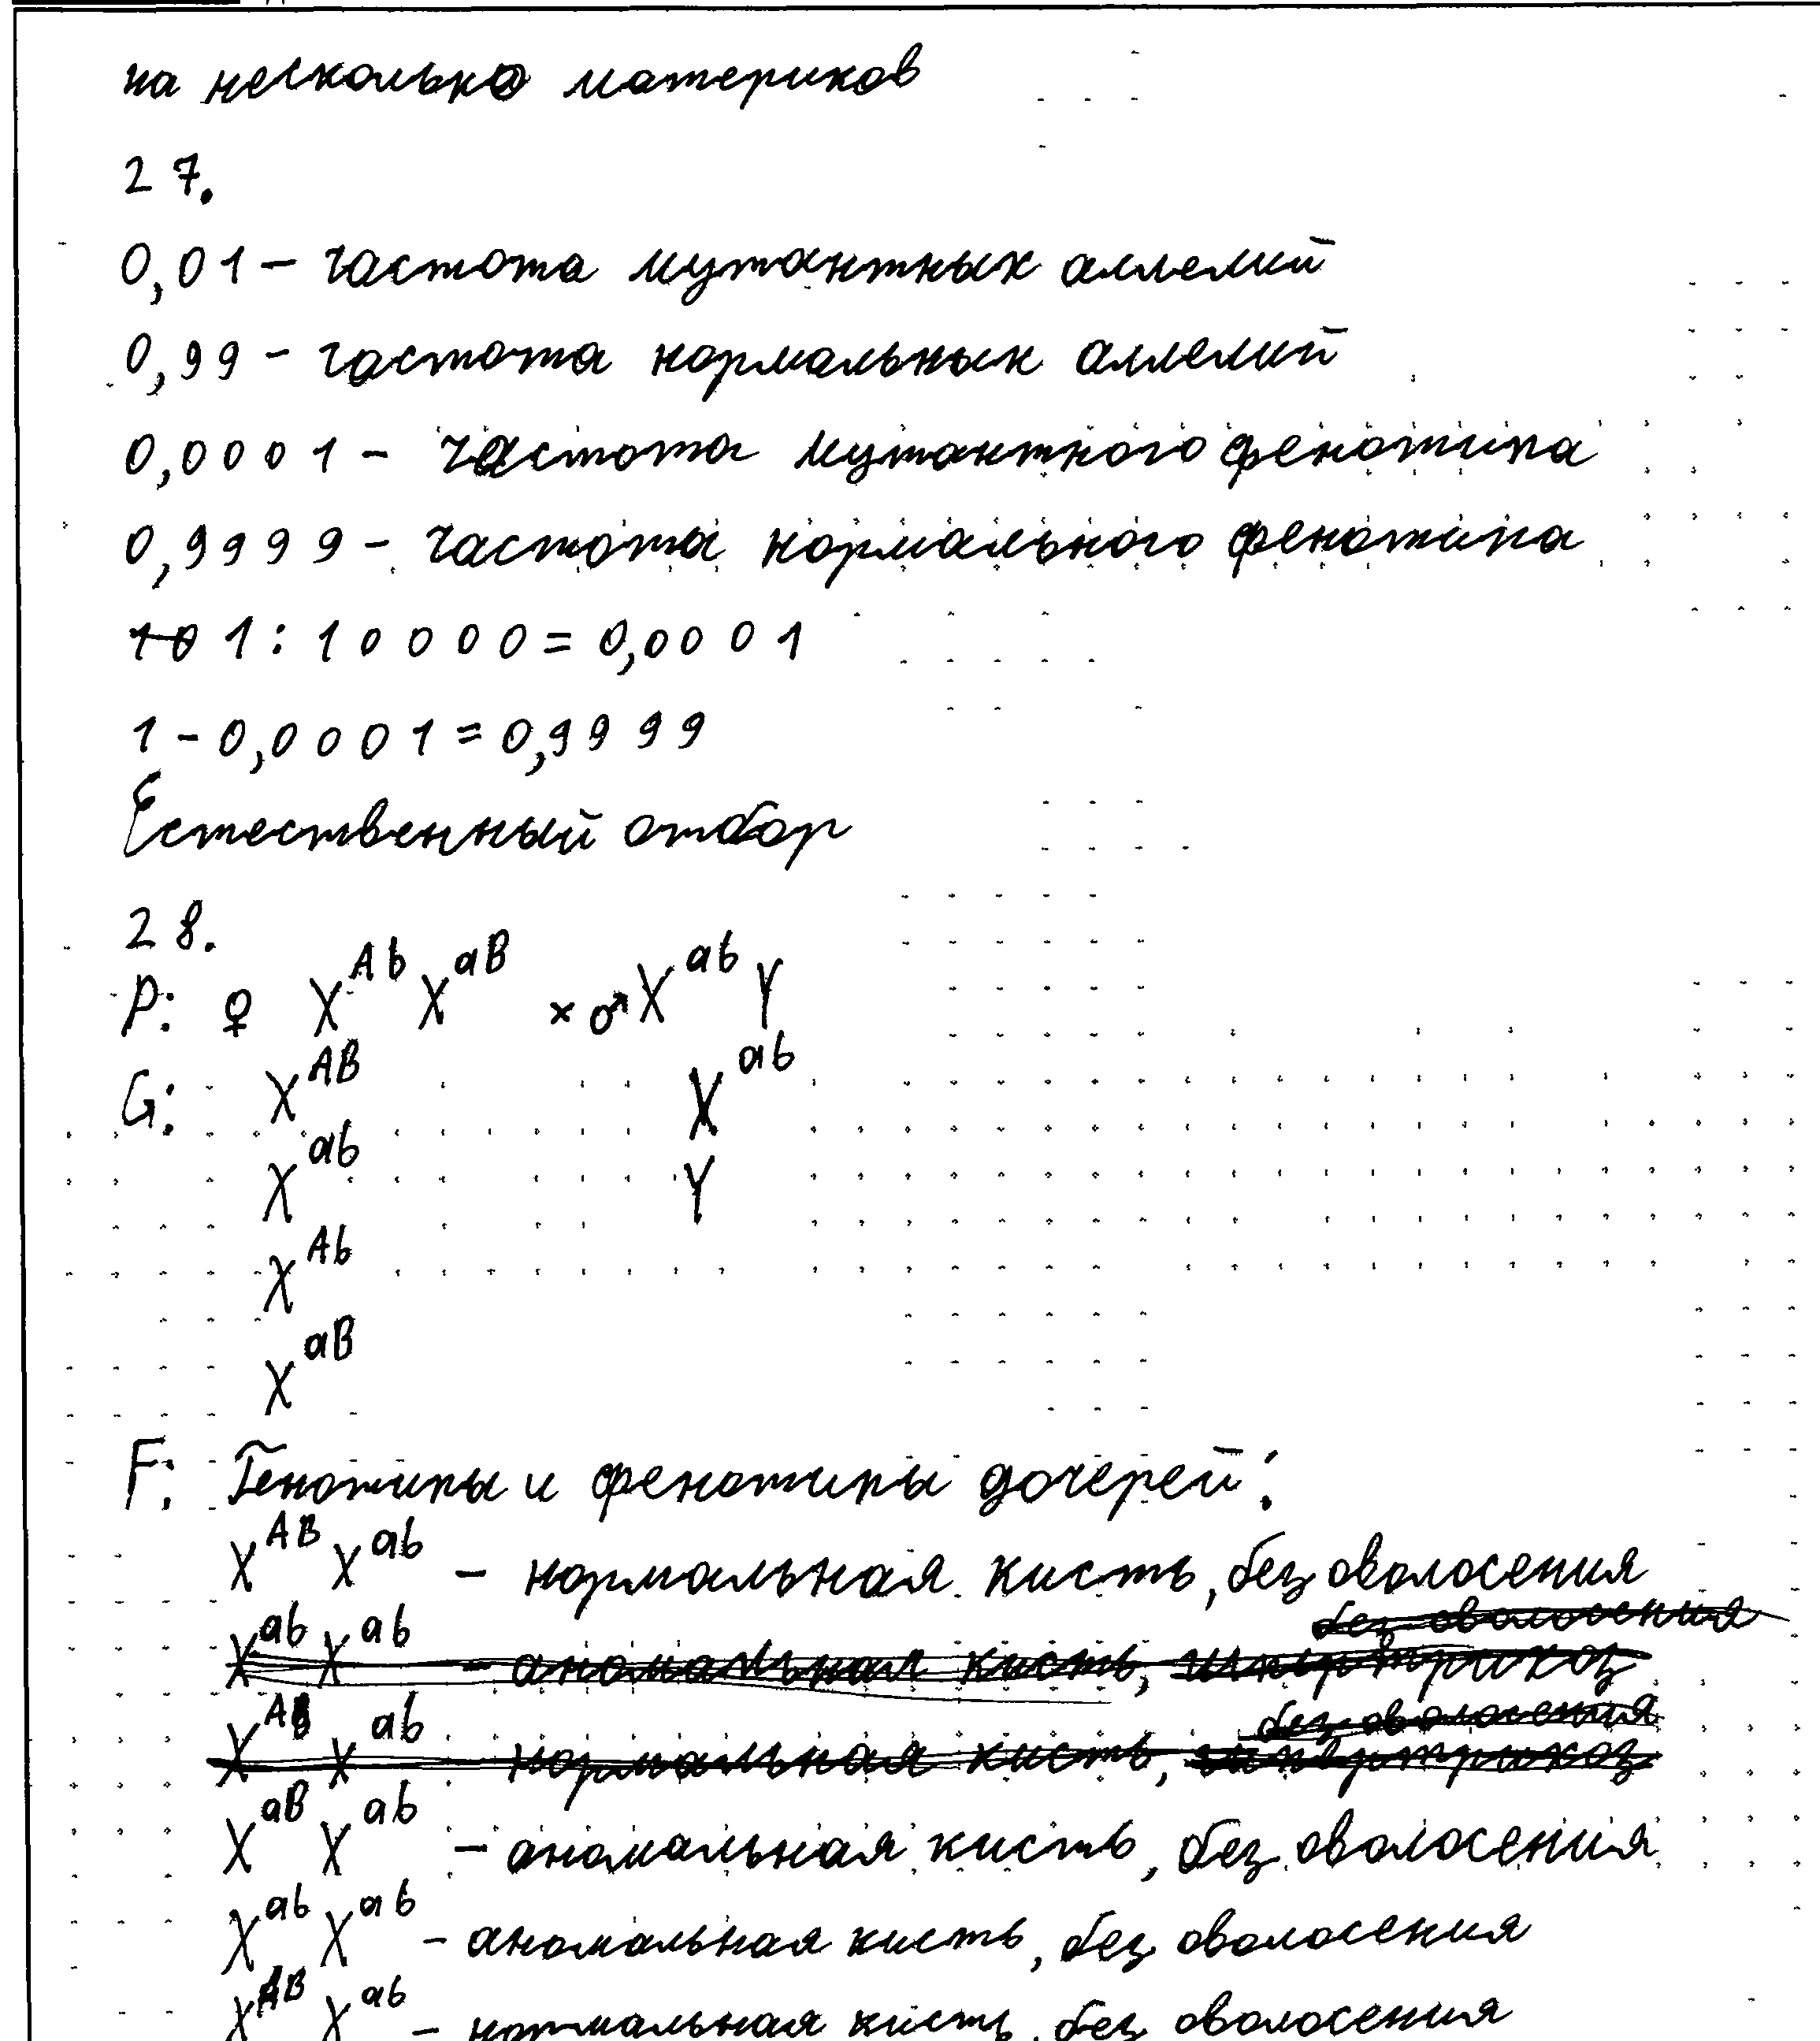 на несколько материков
27.
0,01 – частота мутантных аллелий
0,99 – частота нормальных аллелий
0,0001 – частота мутантного фенотипа
0,9999 – частота нормального фенотипа
10 1 : 10000 = 0,0001
1 – 0,0001 = 0,9999
Естественный отбор
28.
P: ♀ X^Ab X^aB × ♂ X^ab Y
G: X^AB X^ab
X^ab Y
X^Ab
X^aB
F: Генотипы и фенотипы дочерей:
X^AB X^ab – нормальная кисть, без оволосения
без оволосения
X^ab X^ab – аномальная кисть, гипертрихоз
без оволосения
X^AB X^ab – нормальная кисть, гипертрихоз
X^aB X^ab – аномальная кисть, без оволосения
X^ab X^ab – аномальная кисть, без оволосения
X^AB X^ab – нормальная кисть, без оволосения